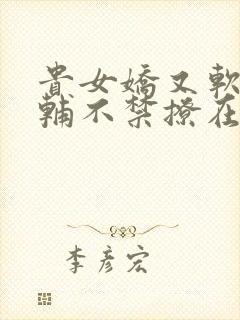 貴女嬌又軟
輔不禁撩在
李彥宏